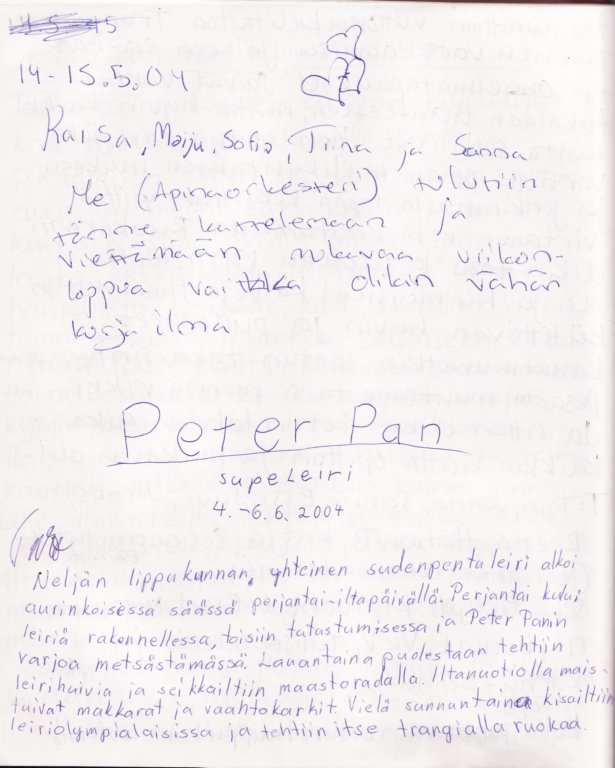 14-15.5.04
Kaisa, Maiju, Sofia, Tiina ja Sanna
Me (Apinaorkesteri) tulutiin
tänne kattelemaan ja
viettämään mukavaa viikon-
loppua vaikka olikin vähän
kurja ilma
Peter Pan
supeleiri
4.-6.6.2004
Neljän lippukunnan, yhteinen sudenpentuleiri alkoi
aurinkoisessa säässä perjantai-iltapäivällä. Perjantai kului
leiriä rakennellessa, toisiin tutustumisessa ja Peter Panin
varjoa metsästämässä. Lauantaina puolestaan tehtiin
leirihuivia ja seikkailtiin maastoradalla. Iltanuotiolla mais-
tuivat makkarat ja vaahtokarkit. Vielä sunnuntaina kisailtiin
leiriolympialaisissa ja tehtiin itse trangialla ruokaa.